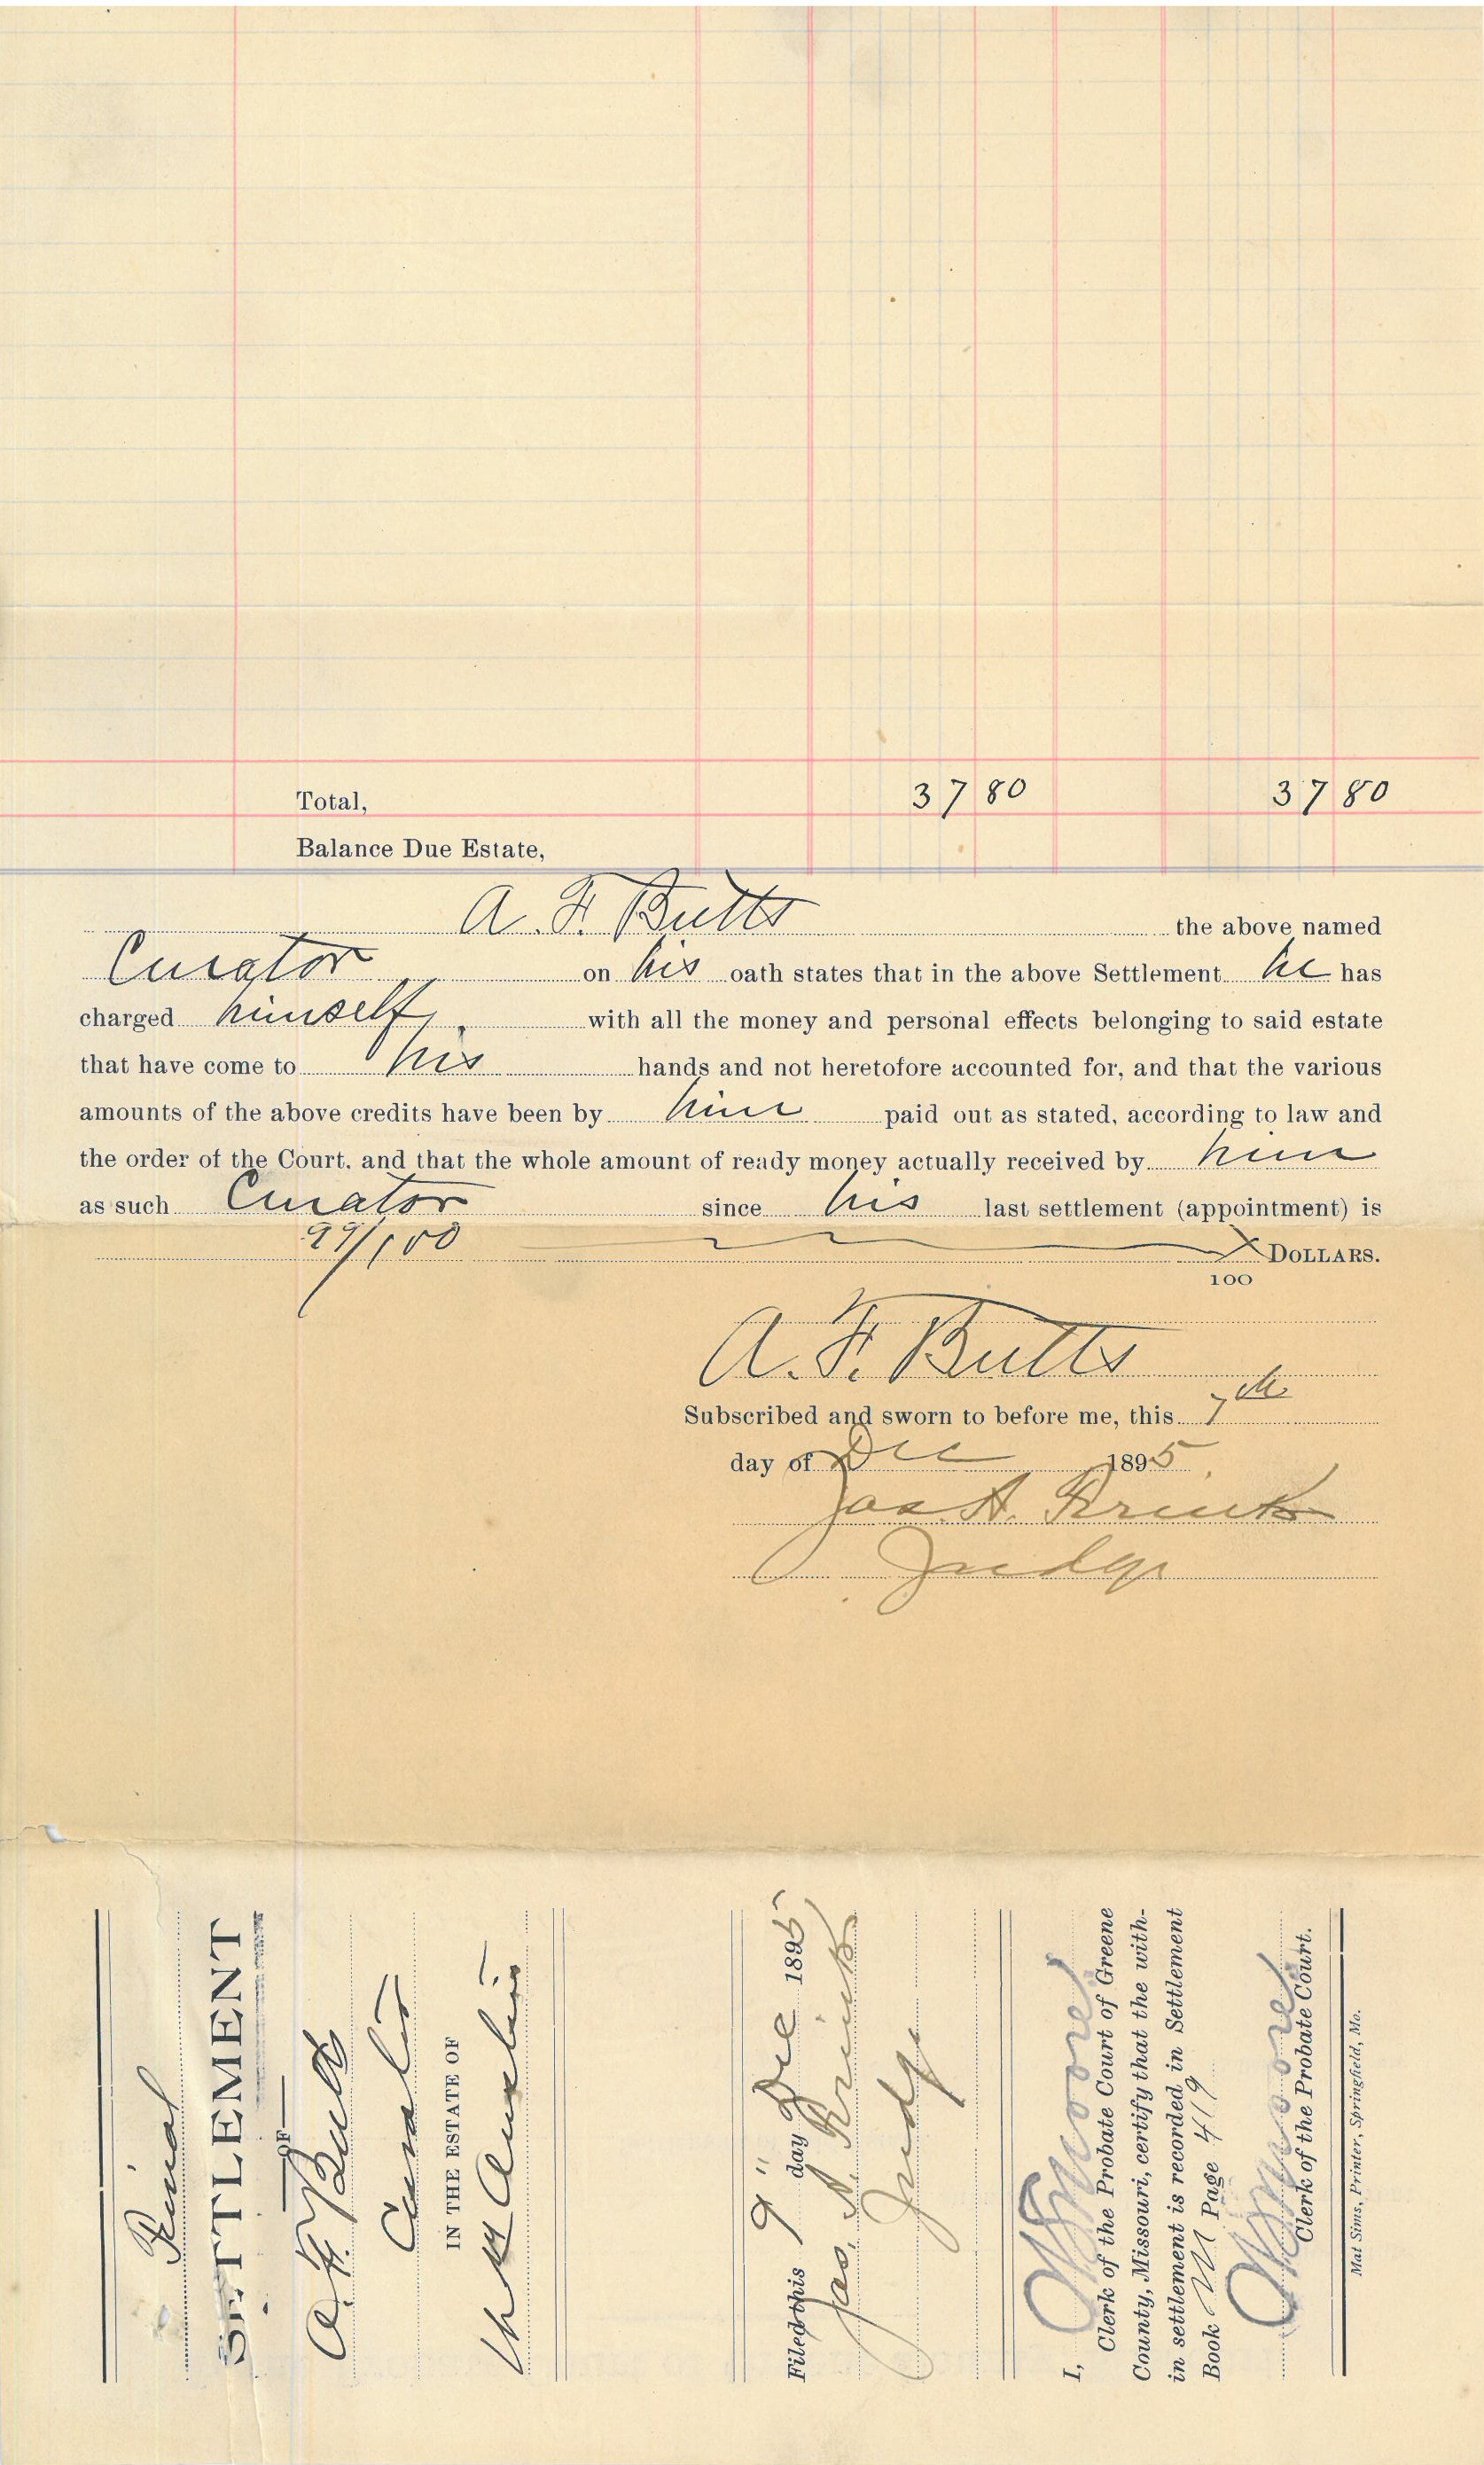 Total, 37 80 37 80
Balance Due Estate,
A. F. Butts the above named
Curator on his oath states that in the above Settlement he has
charged himself, with all the money and personal effects belonging to said estate
that have come to his hands and not heretofore accounted for, and that the various
amounts of the above credits have been by him paid out as stated, according to law and
the order of the Court, and that the whole amount of ready money actually received by him
as such Curator since his last settlement (appointment) is
99/100 DOLLARS.
100
A. F. Butts
Subscribed and sworn to before me, this 7th
day of Dec 1895
Jas. A. 
Judge
Final
SETTLEMENT
OF
A. F. Butts
Curator
IN THE ESTATE OF
Austin
Filed this 9" day Dec 1895
Jas. A.
Judge
I, Moore
Clerk of the Probate Court of Greene
County, Missouri, certify that the with-
in settlement is recorded in Settlement
Book M Page 419
Moore
Clerk of the Probate Court.
Mat Sims, Printer, Springfield, Mo.